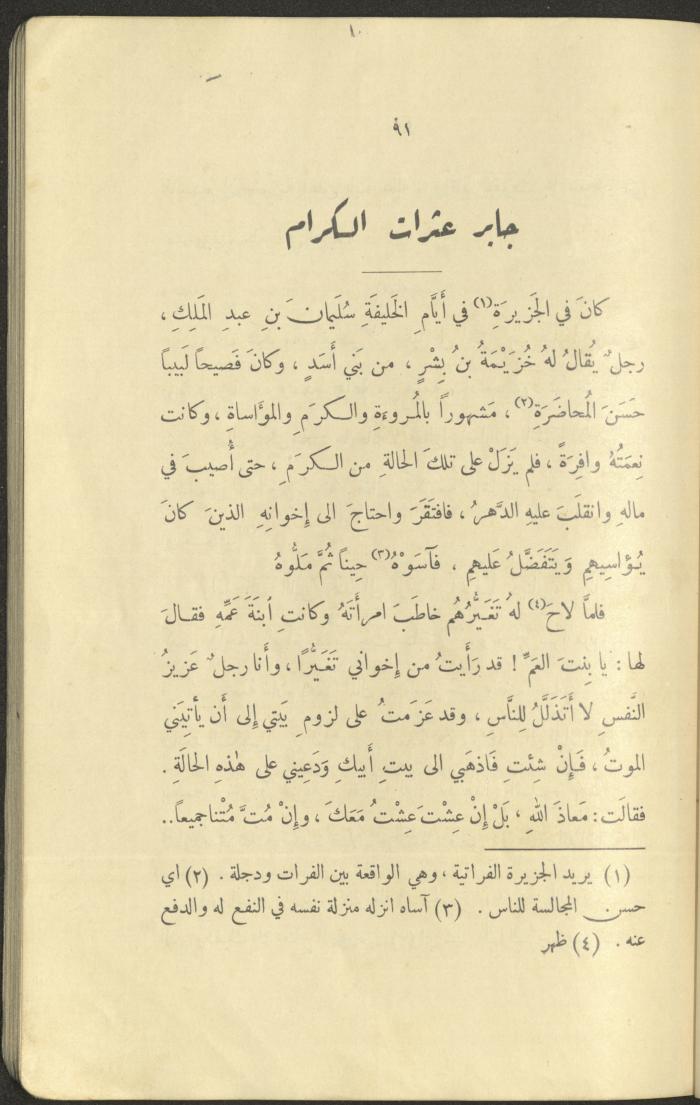 ١٠
٩١
جابر عثرات الكرام
كانَ في الجَزيرَةِ(١) في أَيَّامِ الخَليفَةِ سُلَيمانَ بنِ عبدِ المَلِكِ ،
رجلٌ يُقالُ لهُ خُزَيْمَةُ بنُ بِشْرٍ ، من بَني أَسَدٍ ، وكانَ فَصيحاً لَبيباً
حَسَنَ المُحاضَرَةِ(٢) ، مَشهوراً بالمُروءَةِ والكرَمِ والمؤَاساةِ ، وكانت
نِعمَتُهُ وافِرَةً ، فلم يَزَلْ على تلكَ الحالةِ من الكرَمِ ، حتى أُصيبَ في
مالهِ وانقلَبَ عليهِ الدَّهرُ ، فافتَقَرَ واحتاجَ الى إِخوانِهِ الذينَ كانَ
يُؤاسِيهِمِ وَيَتَفَضَّلُ عَليهمِ ، فآسَوْهُ(٣) حِيناً ثُمَّ مَلُّوهُ
فلمَّا لاحَ(٤) لهُ تَغَيُّرُهُم خاطَبَ امرأَتَهُ وكانتِ ٱبنَةَ عَمِّهِ فقالَ
لها : يا بِنتَ العَمِّ ! قد رَأَيتُ من إِخواني تَغَيُّرًا ، وأَنا رجلٌ عَزيزُ
النَّفسِ لا أَتَذَلَّلُ لِلنَّاسِ ، وقد عَزَمتُ على لزومِ بَيتي إِلى أَن يأتِيَني
الموتُ ، فَإِنْ شِئتِ فَاذهَبي الى بيتِ أَبيكِ وَدَعِيني على هٰذِهِ الحالَةِ .
فقالَت : مَعاذَ اللهِ ، بَلْ إِنْ عِشْتَ عِشْتُ مَعَكَ ، وإِنْ مُتَّ مُتْنا جميعاً..
(١) يريد الجزيرة الفراتية ، وهي الواقعة بين الفرات ودجلة . (٢) اي
حسن المجالسة للناس . (٣) آساه انزله منزلة نفسه في النفع له والدفع
عنه . (٤) ظهر